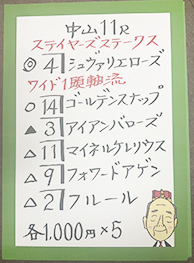 中山11R
ステイヤーズステークス
◎4シュヴァリエローズ
ワイド1頭軸流
○14ゴールデンスナップ
▲3アイアンバローズ
△11マイネルケレリウス
△9フォワードアゲン
△2フルール
各1,000円×5